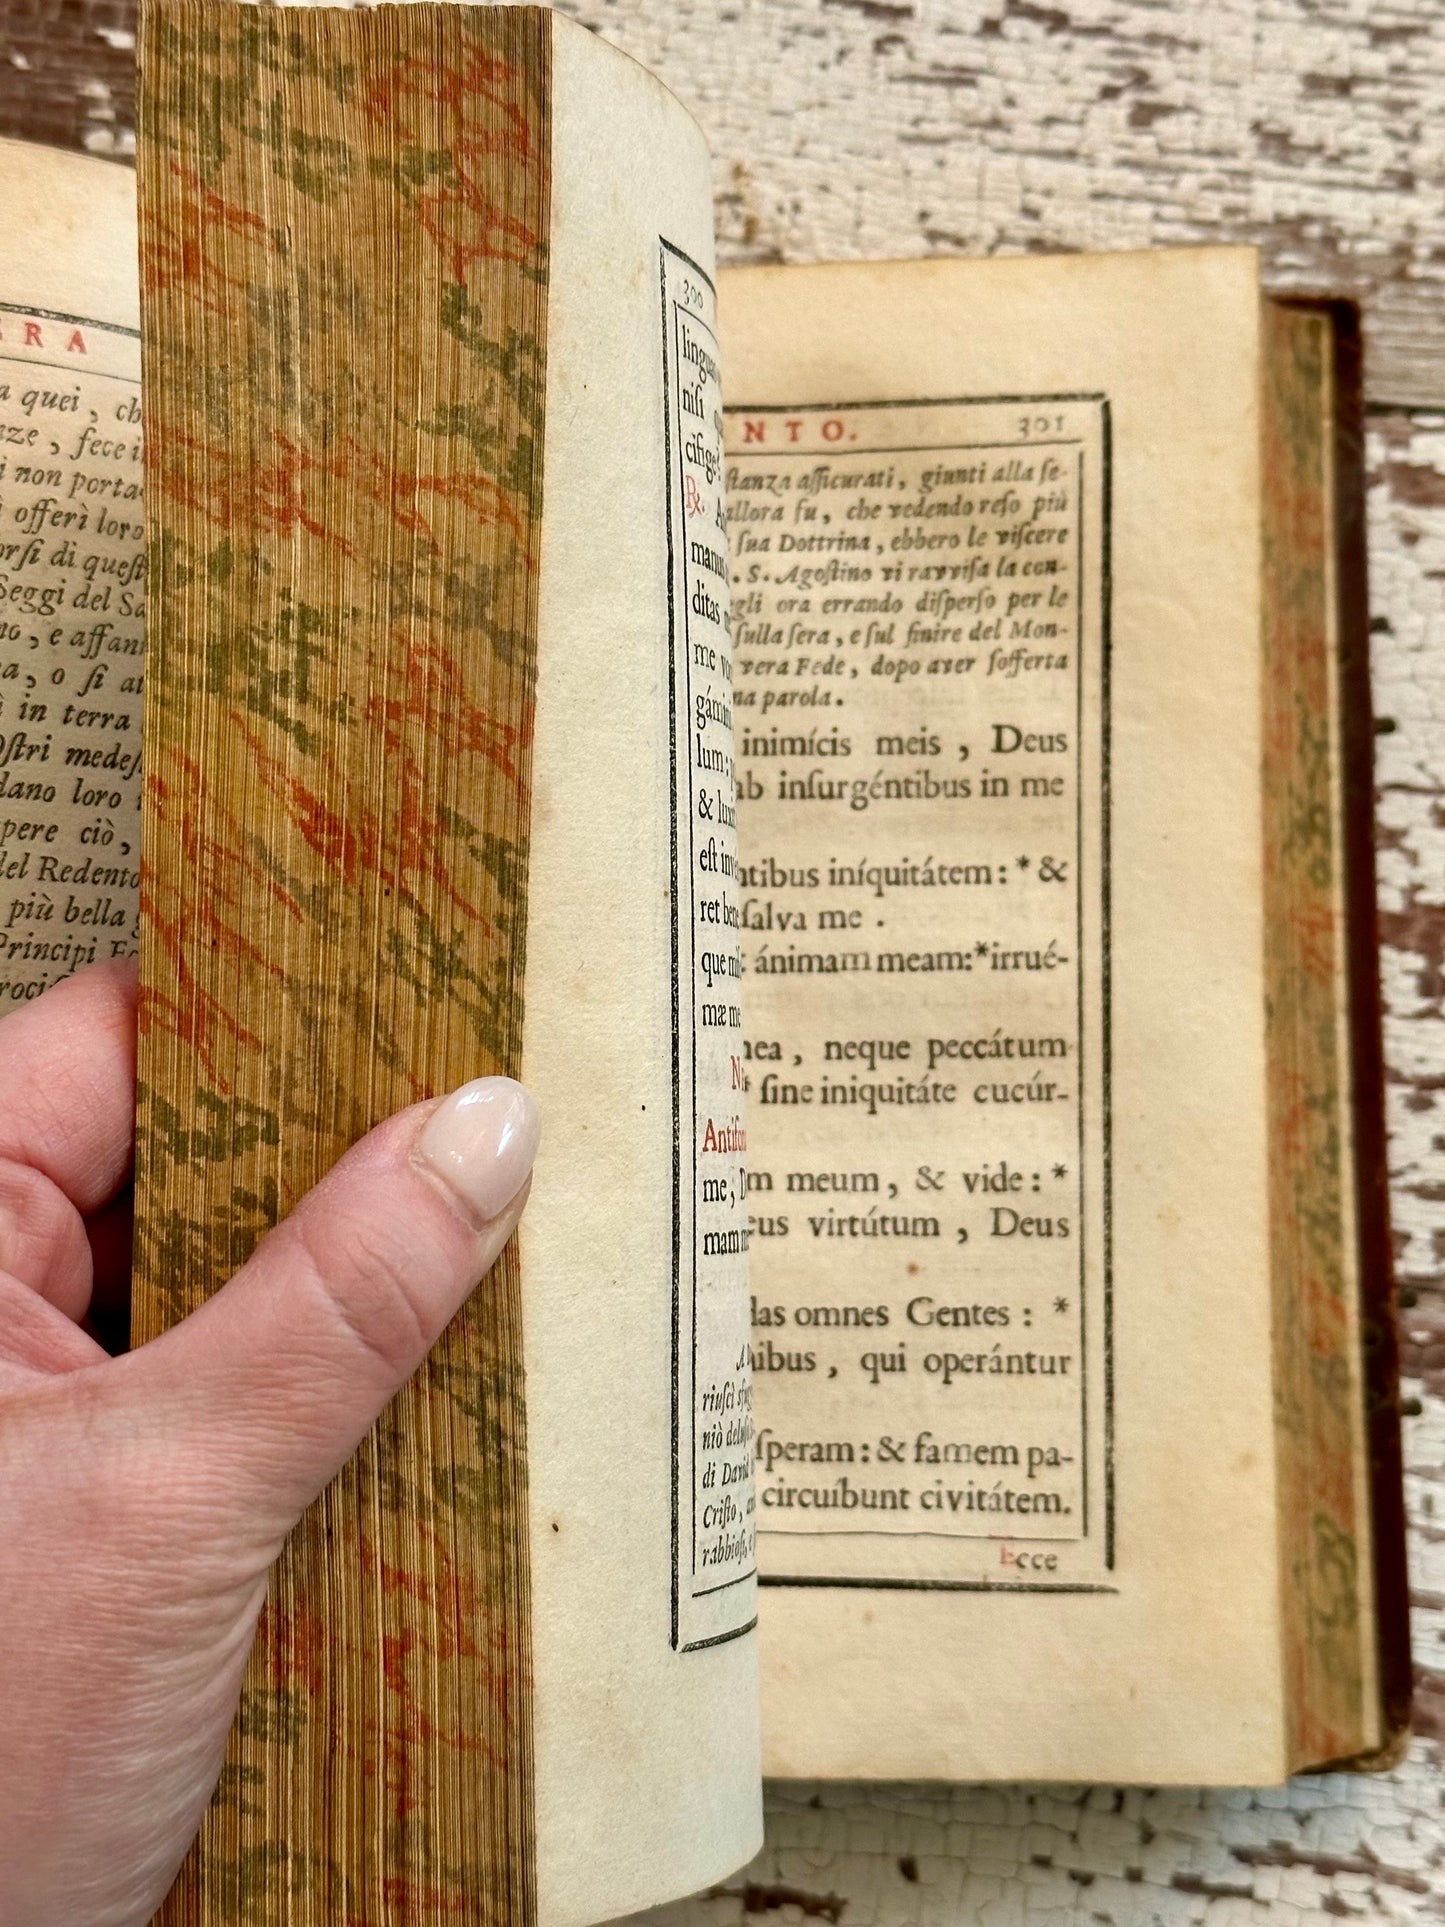 ERA
a quei, ch
nze, fece i
i non porta-
ì offerì loro
orſi di queſt
Seggi del Sa
no, e affan
a, o ſi at
ì in terra
Oſtri medeſ
dano loro
pere ciò,
del Redento
più bella
Principi
300
lingua
niſi
cifige
℟.
manus
ditas
me
gámin
lum:
& lux
eſt inv
ret bene
que mih
mæ me
Antifon
me, D
mam m
riuſcì
niò
di David
Criſto,
rabbioſi, e
NTO. 301
ſtanza aſſicurati, giunti alla ſe-
allora fu, che vedendo reſo più
ſua Dottrina, ebbero le viſcere
. S. Agoſtino vi ravviſa la con-
egli ora errando diſperſo per le
ſulla ſera, e ſul finire del Mon-
vera Fede, dopo aver ſofferta
na parola.
inimícis meis, Deus
ab inſurgéntibus in me
ntibus iníquitátem: * &
ſalva me.
: ánimam meam:*irrué-
nea, neque peccátum
* ſine iniquitáte cucúr-
m meum, & vide: *
eus virtútum, Deus
das omnes Gentes: *
nibus, qui operántur
ſperam: & famem pa-
circuíbunt civitátem.
Ecce